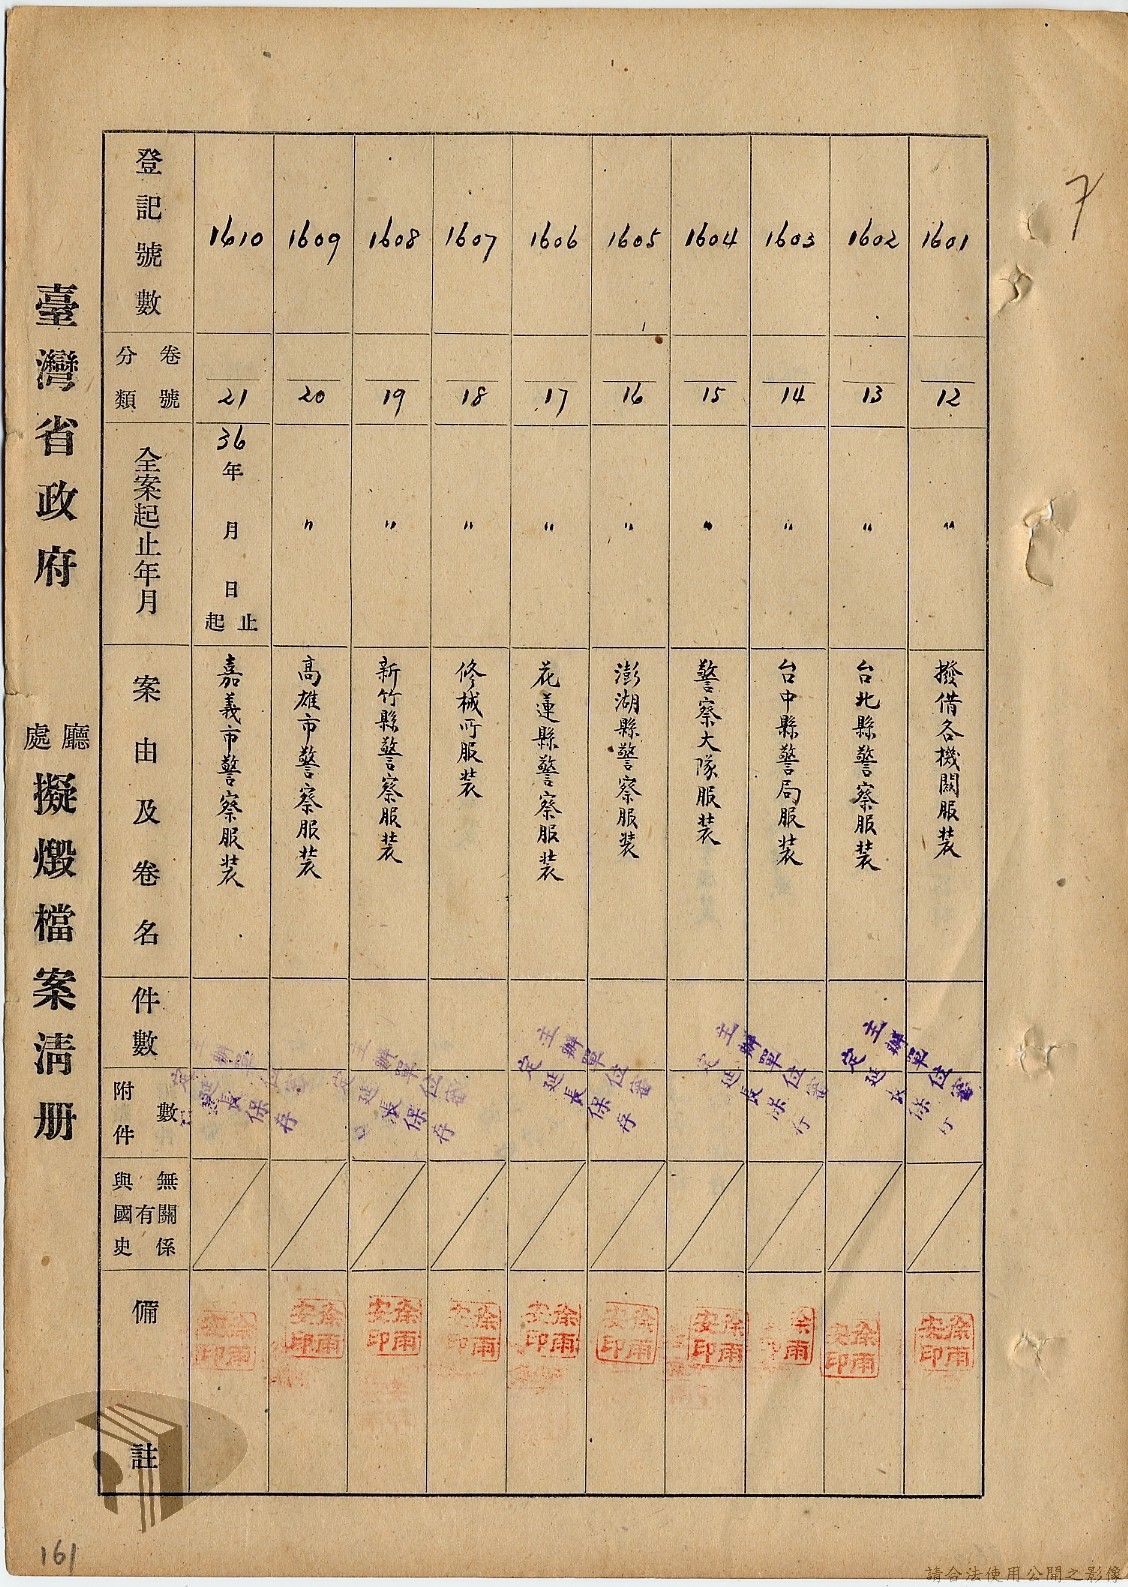 7
登記號數
分類 卷號
全案起止年月
案由及卷名
件數
附件數
與國史有無關係
備註
1601
12
〃
撥借各機關服裝
主辦單位審
定延長保
徐雨安印
1602
13
〃
台北縣警察服裝
徐雨安印
1603
14
〃
台中縣警局服裝
主辦單位審
定延長保
徐雨安印
1604
15
〃
警察大隊服裝
徐雨安印
1605
16
〃
澎湖縣警察服裝
主辦單位審
定延長保存
徐雨安印
1606
17
〃
花蓮縣警察服裝
徐雨安印
1607
18
〃
修械所服裝
徐雨安印
1608
19
〃
新竹縣警察服裝
主辦單位審
定延長保存
徐雨安印
1609
20
〃
高雄市警察服裝
徐雨安印
1610
21
36年月日起止
嘉義市警察服裝
主辦單位審
定延長保存
徐雨安印
臺灣省政府 廳處 擬燬檔案清册
161
請合法使用公開之影像